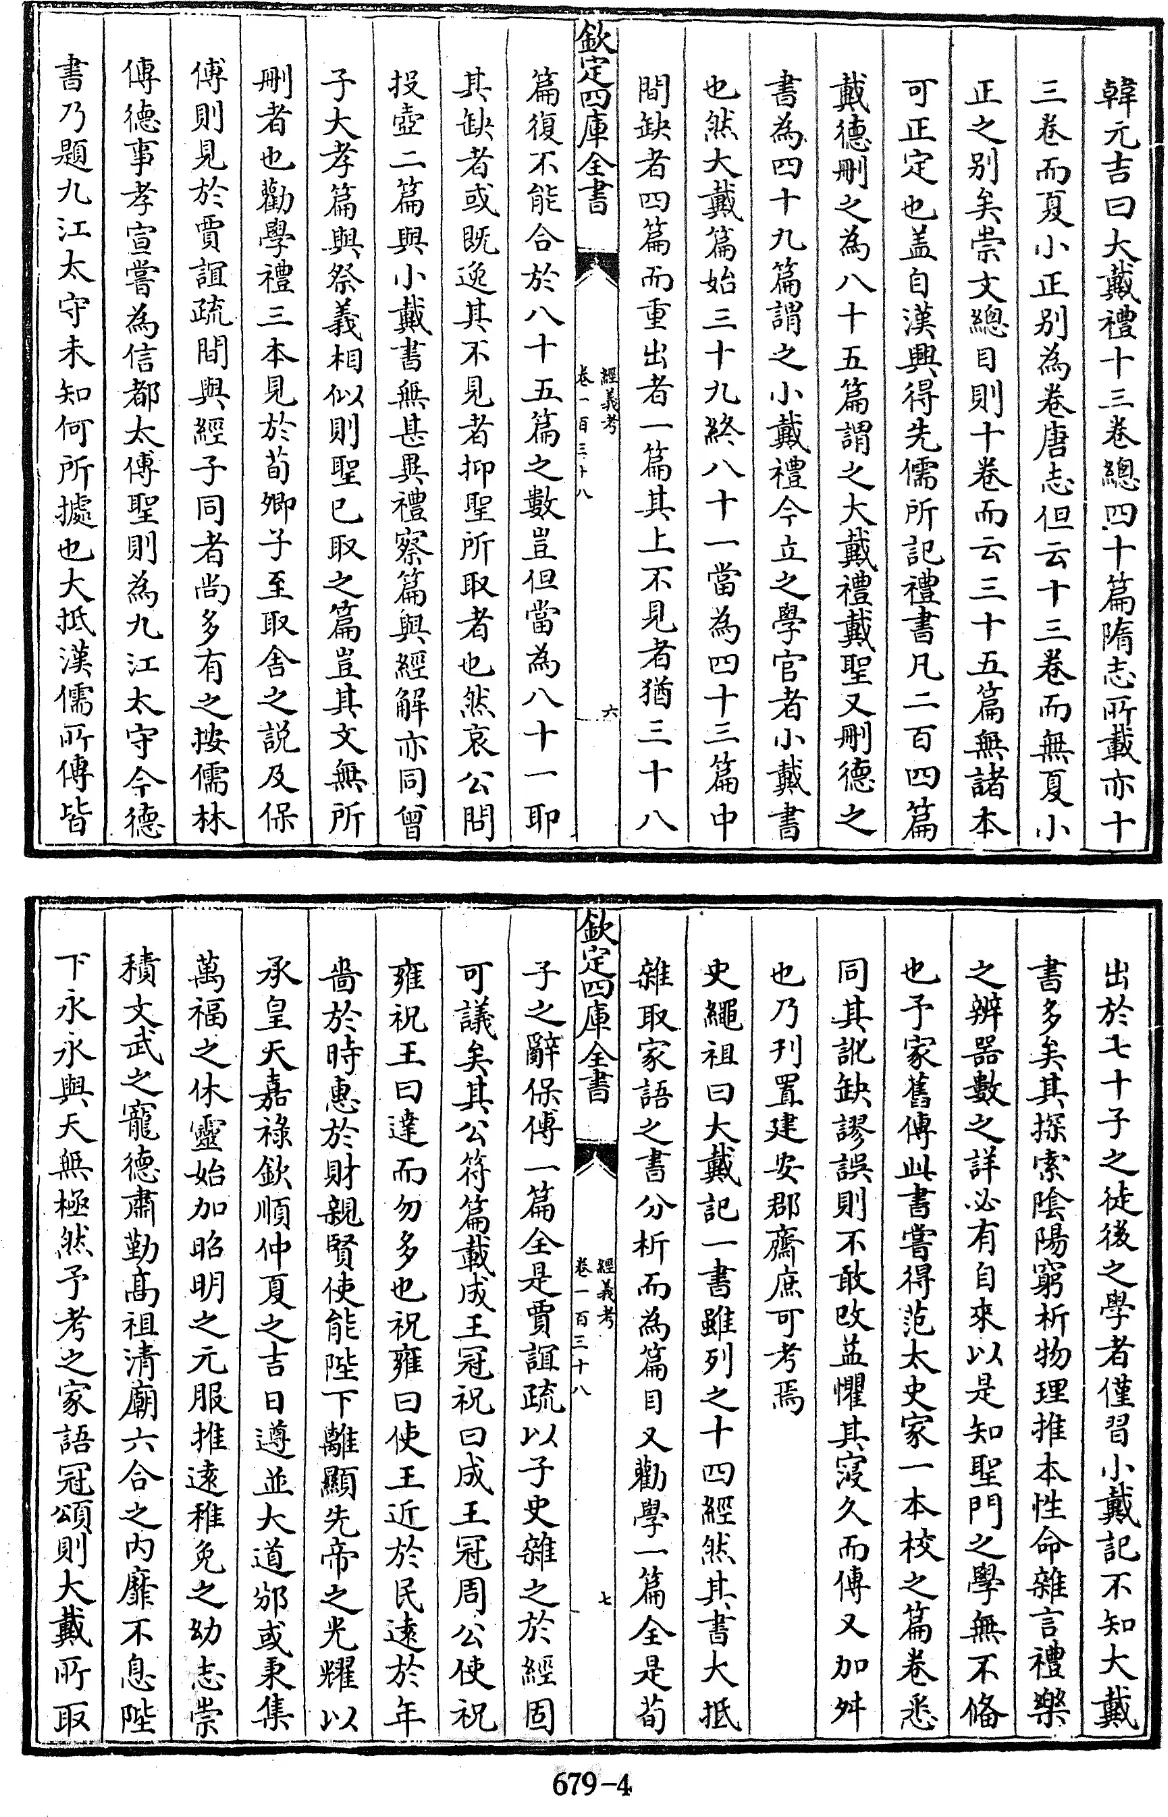 韓元吉曰大戴禮十三卷總四十篇隋志所載亦十
三卷而夏小正别為卷唐志但云十三卷而無夏小
正之别矣崇文總目則十卷而云三十五篇無諸本
可正定也盖自漢興得先儒所記禮書凡二百四篇
戴德刪之為八十五篇謂之大戴禮戴聖又刪德之
書為四十九篇謂之小戴禮今立之學官者小戴書
也然大戴篇始三十九終八十一當為四十三篇中
間缺者四篇而重出者一篇其上不見者猶三十八
欽定四庫全書
經義考
卷一百三十八
六
篇復不能合於八十五篇之數豈但當為八十一耶
其缺者或既逸其不見者抑聖所取者也然哀公問
投壺二篇與小戴書無甚異禮察篇與經解亦同曾
子大孝篇與祭義相似則聖已取之篇豈其文無所
刪者也勸學禮三本見於荀卿子至取舍之説及保
傅則見於賈誼疏間與經子同者尚多有之按儒林
傳德事孝宣嘗為信都太傅聖則為九江太守今德
書乃題九江太守未知何所據也大抵漢儒所傳皆
出於七十子之徒後之學者僅習小戴記不知大戴
書多矣其探索陰陽窮析物理推本性命雜言禮樂
之辨器數之詳必有自來以是知聖門之學無不備
也予家舊傳此書嘗得范太史家一本校之篇卷悉
同其訛缺謬誤則不敢改益懼其寖久而傳又加舛
也乃刊置建安郡齋庶可考焉
史繩祖曰大戴記一書雖列之十四經然其書大抵
雜取家語之書分析而為篇目又勸學一篇全是荀
欽定四庫全書
經義考
卷一百三十八
七
子之辭保傅一篇全是賈誼疏以子史雜之於經固
可議矣其公符篇載成王冠祝曰成王冠周公使祝
雍祝王曰達而勿多也祝雍曰使王近於民遠於年
嗇於時惠於財親賢使能陛下離顯先帝之光耀以
承皇天嘉祿欽順仲夏之吉日遵並大道邠或秉集
萬福之休靈始加昭明之元服推遠稚免之幼志崇
積文武之寵德肅勤髙祖清廟六合之内靡不息陛
下永永與天無極然予考之家語冠頌則大戴所取
679-4